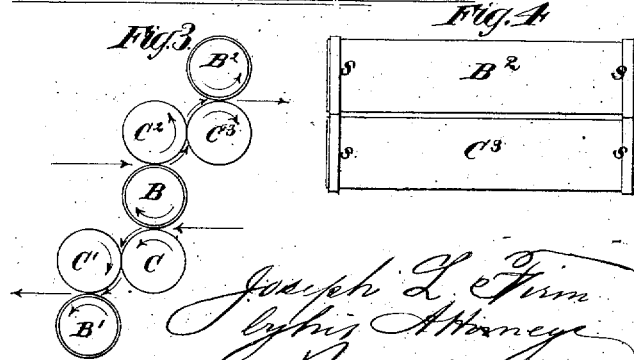 Fig. 3.
Fig. 4
B²
C² C³
B
C¹ C
B¹
S B² S
S C³ S
Joseph L. Firm
by his Attorneys